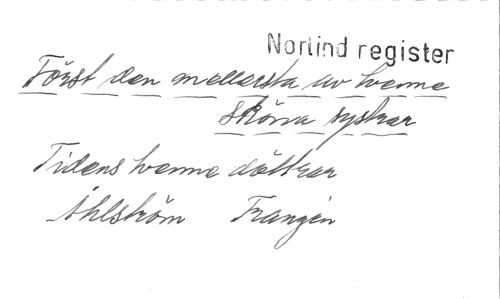 Norlind register
Först den mellersta av trenne
sköna systrar
Tidens trenne döttrar
Åhlström Franzén